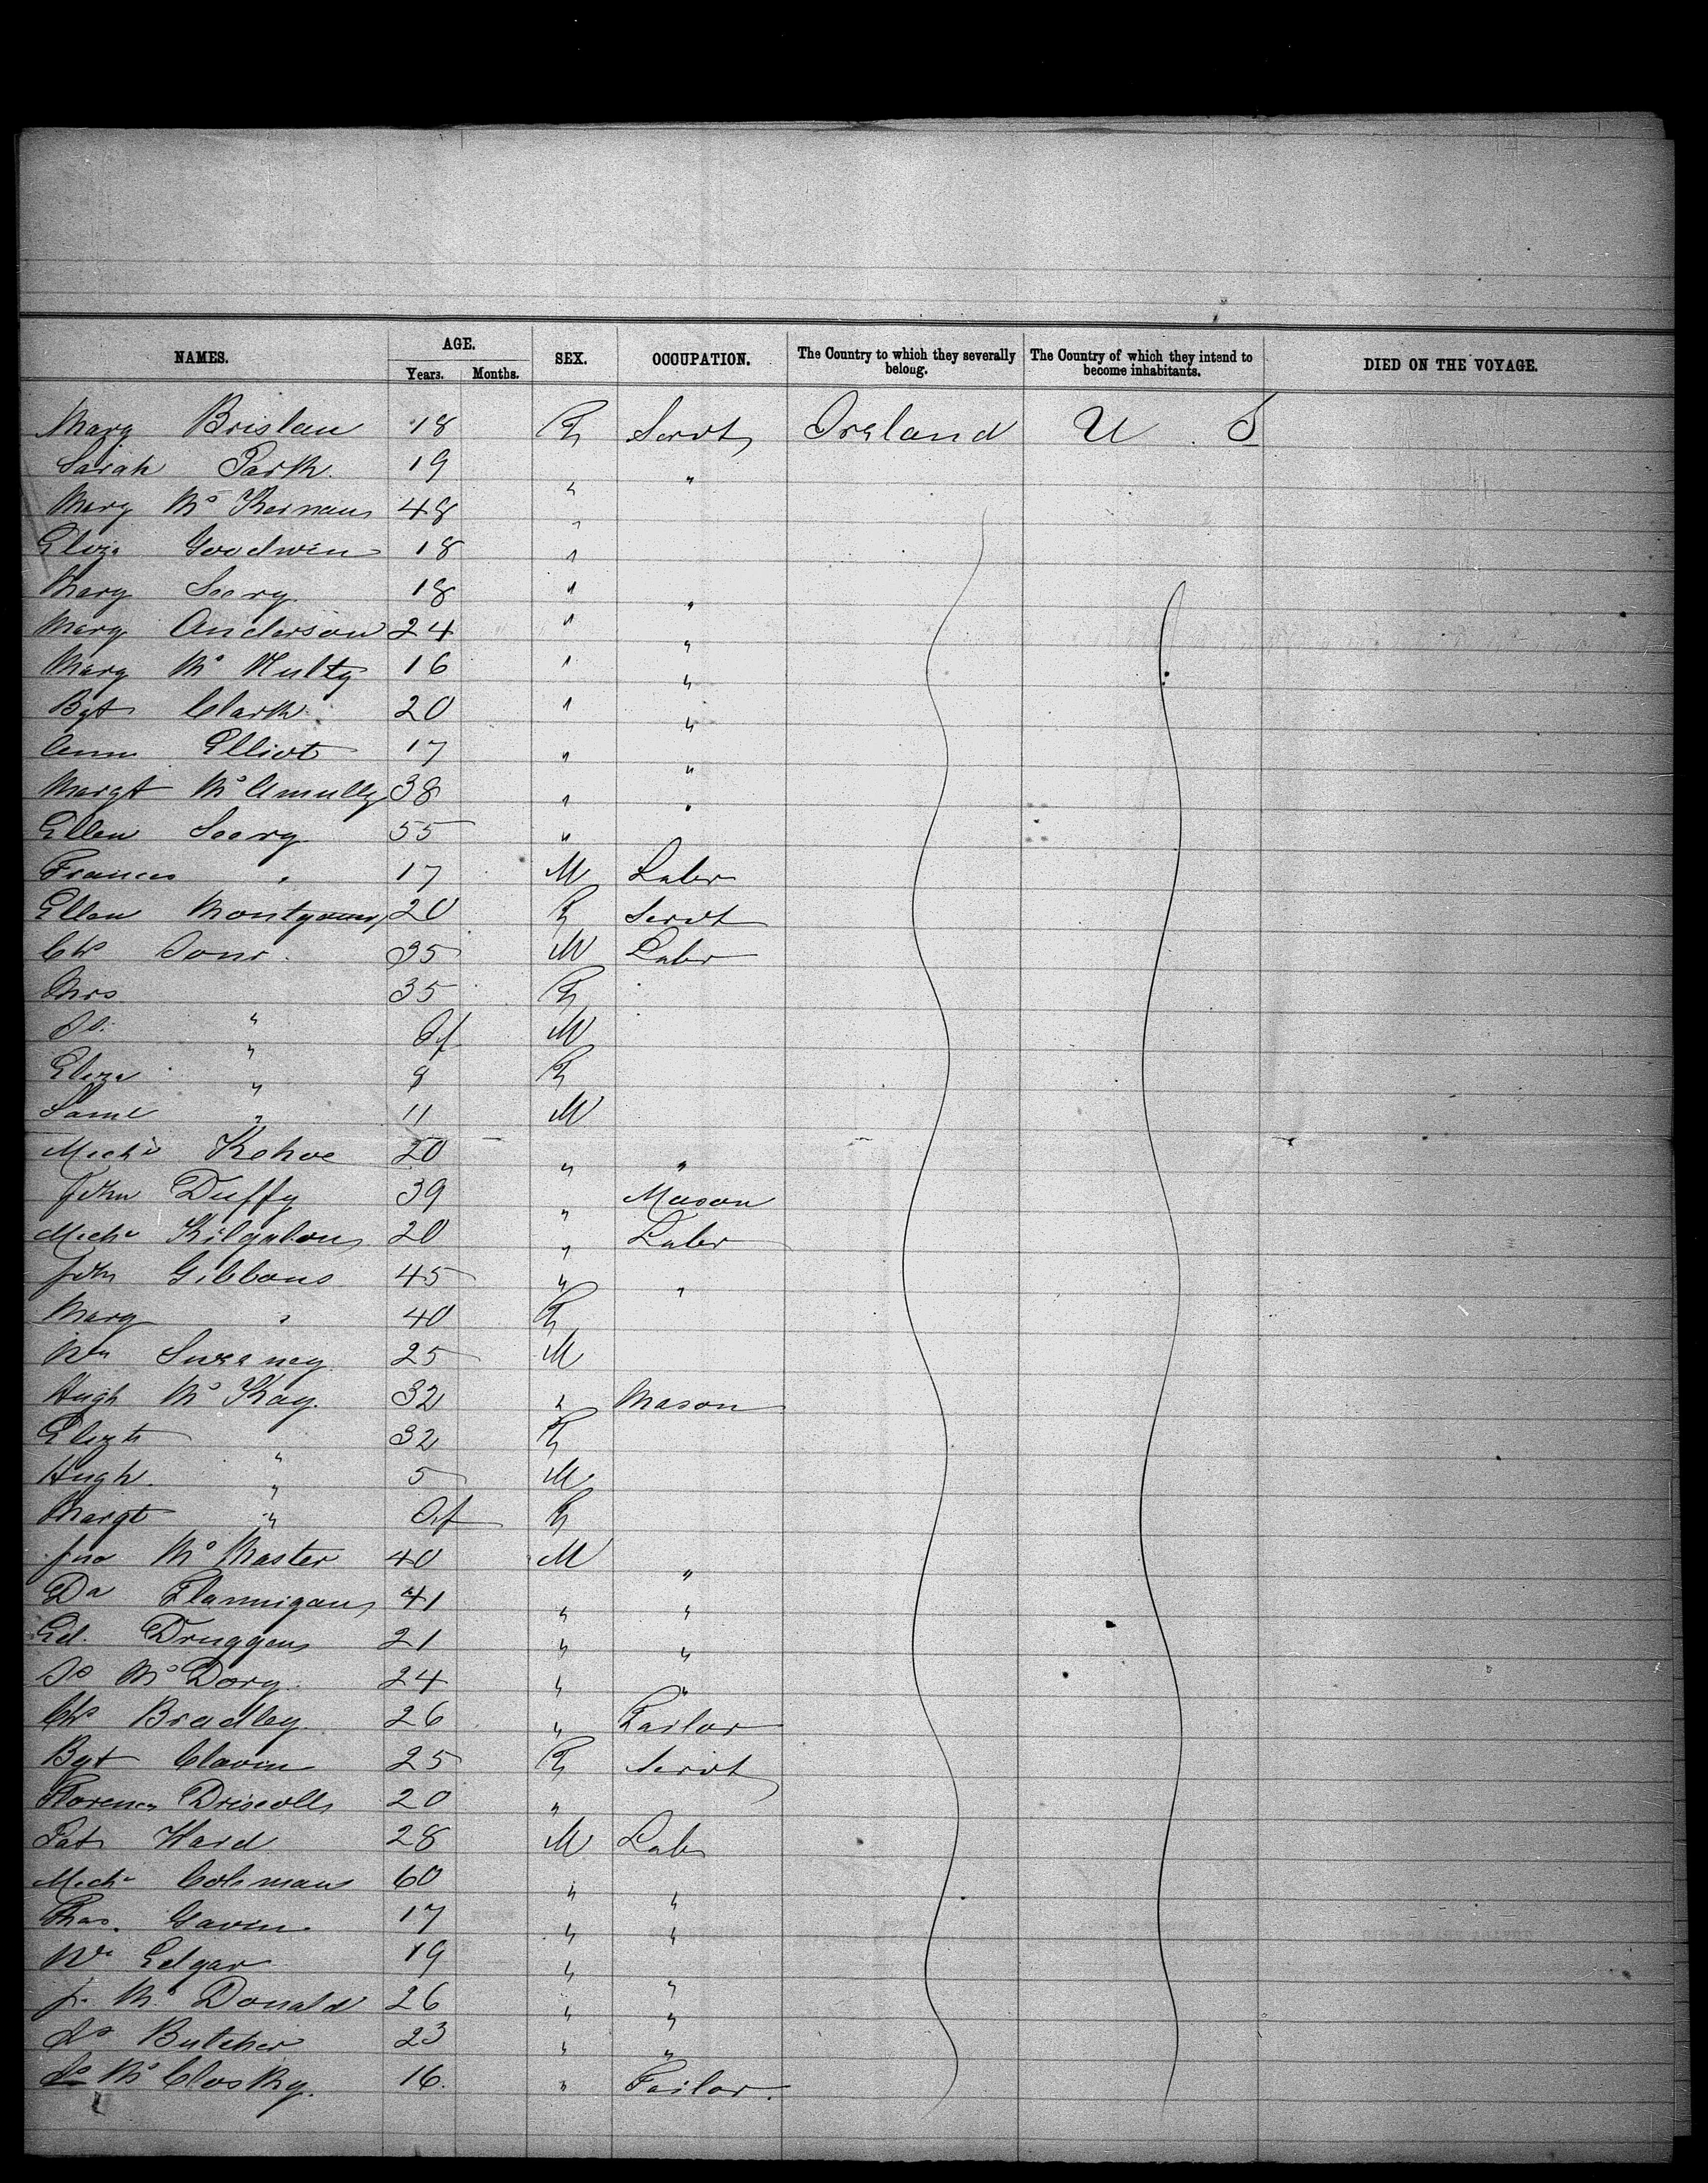 NAMES. AGE. SEX. OCCUPATION. The Country to which they severally belong. The Country of which they intend to become inhabitants. DIED ON THE VOYAGE.
Years. Months.
Mary Brislan 18 F Servt Ireland U. S
Sarah Park. 19 " "
Mary Mc Kernan 48 "
Eliza Goodwin 18 "
Mary Seery 18 " "
Mary Anderson 24 " "
Mary Mc Nulty 16 " "
Bgt Clark 20 " "
Ann Elliot 17 " "
Margt Mc Anully 38 " "
Ellen Seery 55 "
Frances " 17 M Labr
Ellen Montgomery 20 F Servt
Chs 35 M Labr
Mrs " 35 F
" Inf M
Eliza " 8 F
Saml " 11 M
Michl Kehoe 20 " "
John Duffy 39 " Mason
Michl 20 " Labr
John Gibbons 45 " "
Mary " 40 F
Wm Sweeney 25 M
Hugh Mc Kay. 32 " Mason
Elizth " 32 F
Hugh. " 5 M
Margt " Inf F
Jno Mc Master 40 M "
Da Flannigan 41 " "
Ed. 21 " "
24 " "
Chs Bradley. 26 " Tailor
Bgt Clavin 25 F Servt
Florence Driscoll 20 "
Pat Ward 28 M Labr
Michl Coleman 60 " "
Thos. Gavin. 17 " "
Wm Edgar 19 " "
J. Mc Donald 26 " "
Butcher 23 " "
Mc Closky. 16. " Tailor.